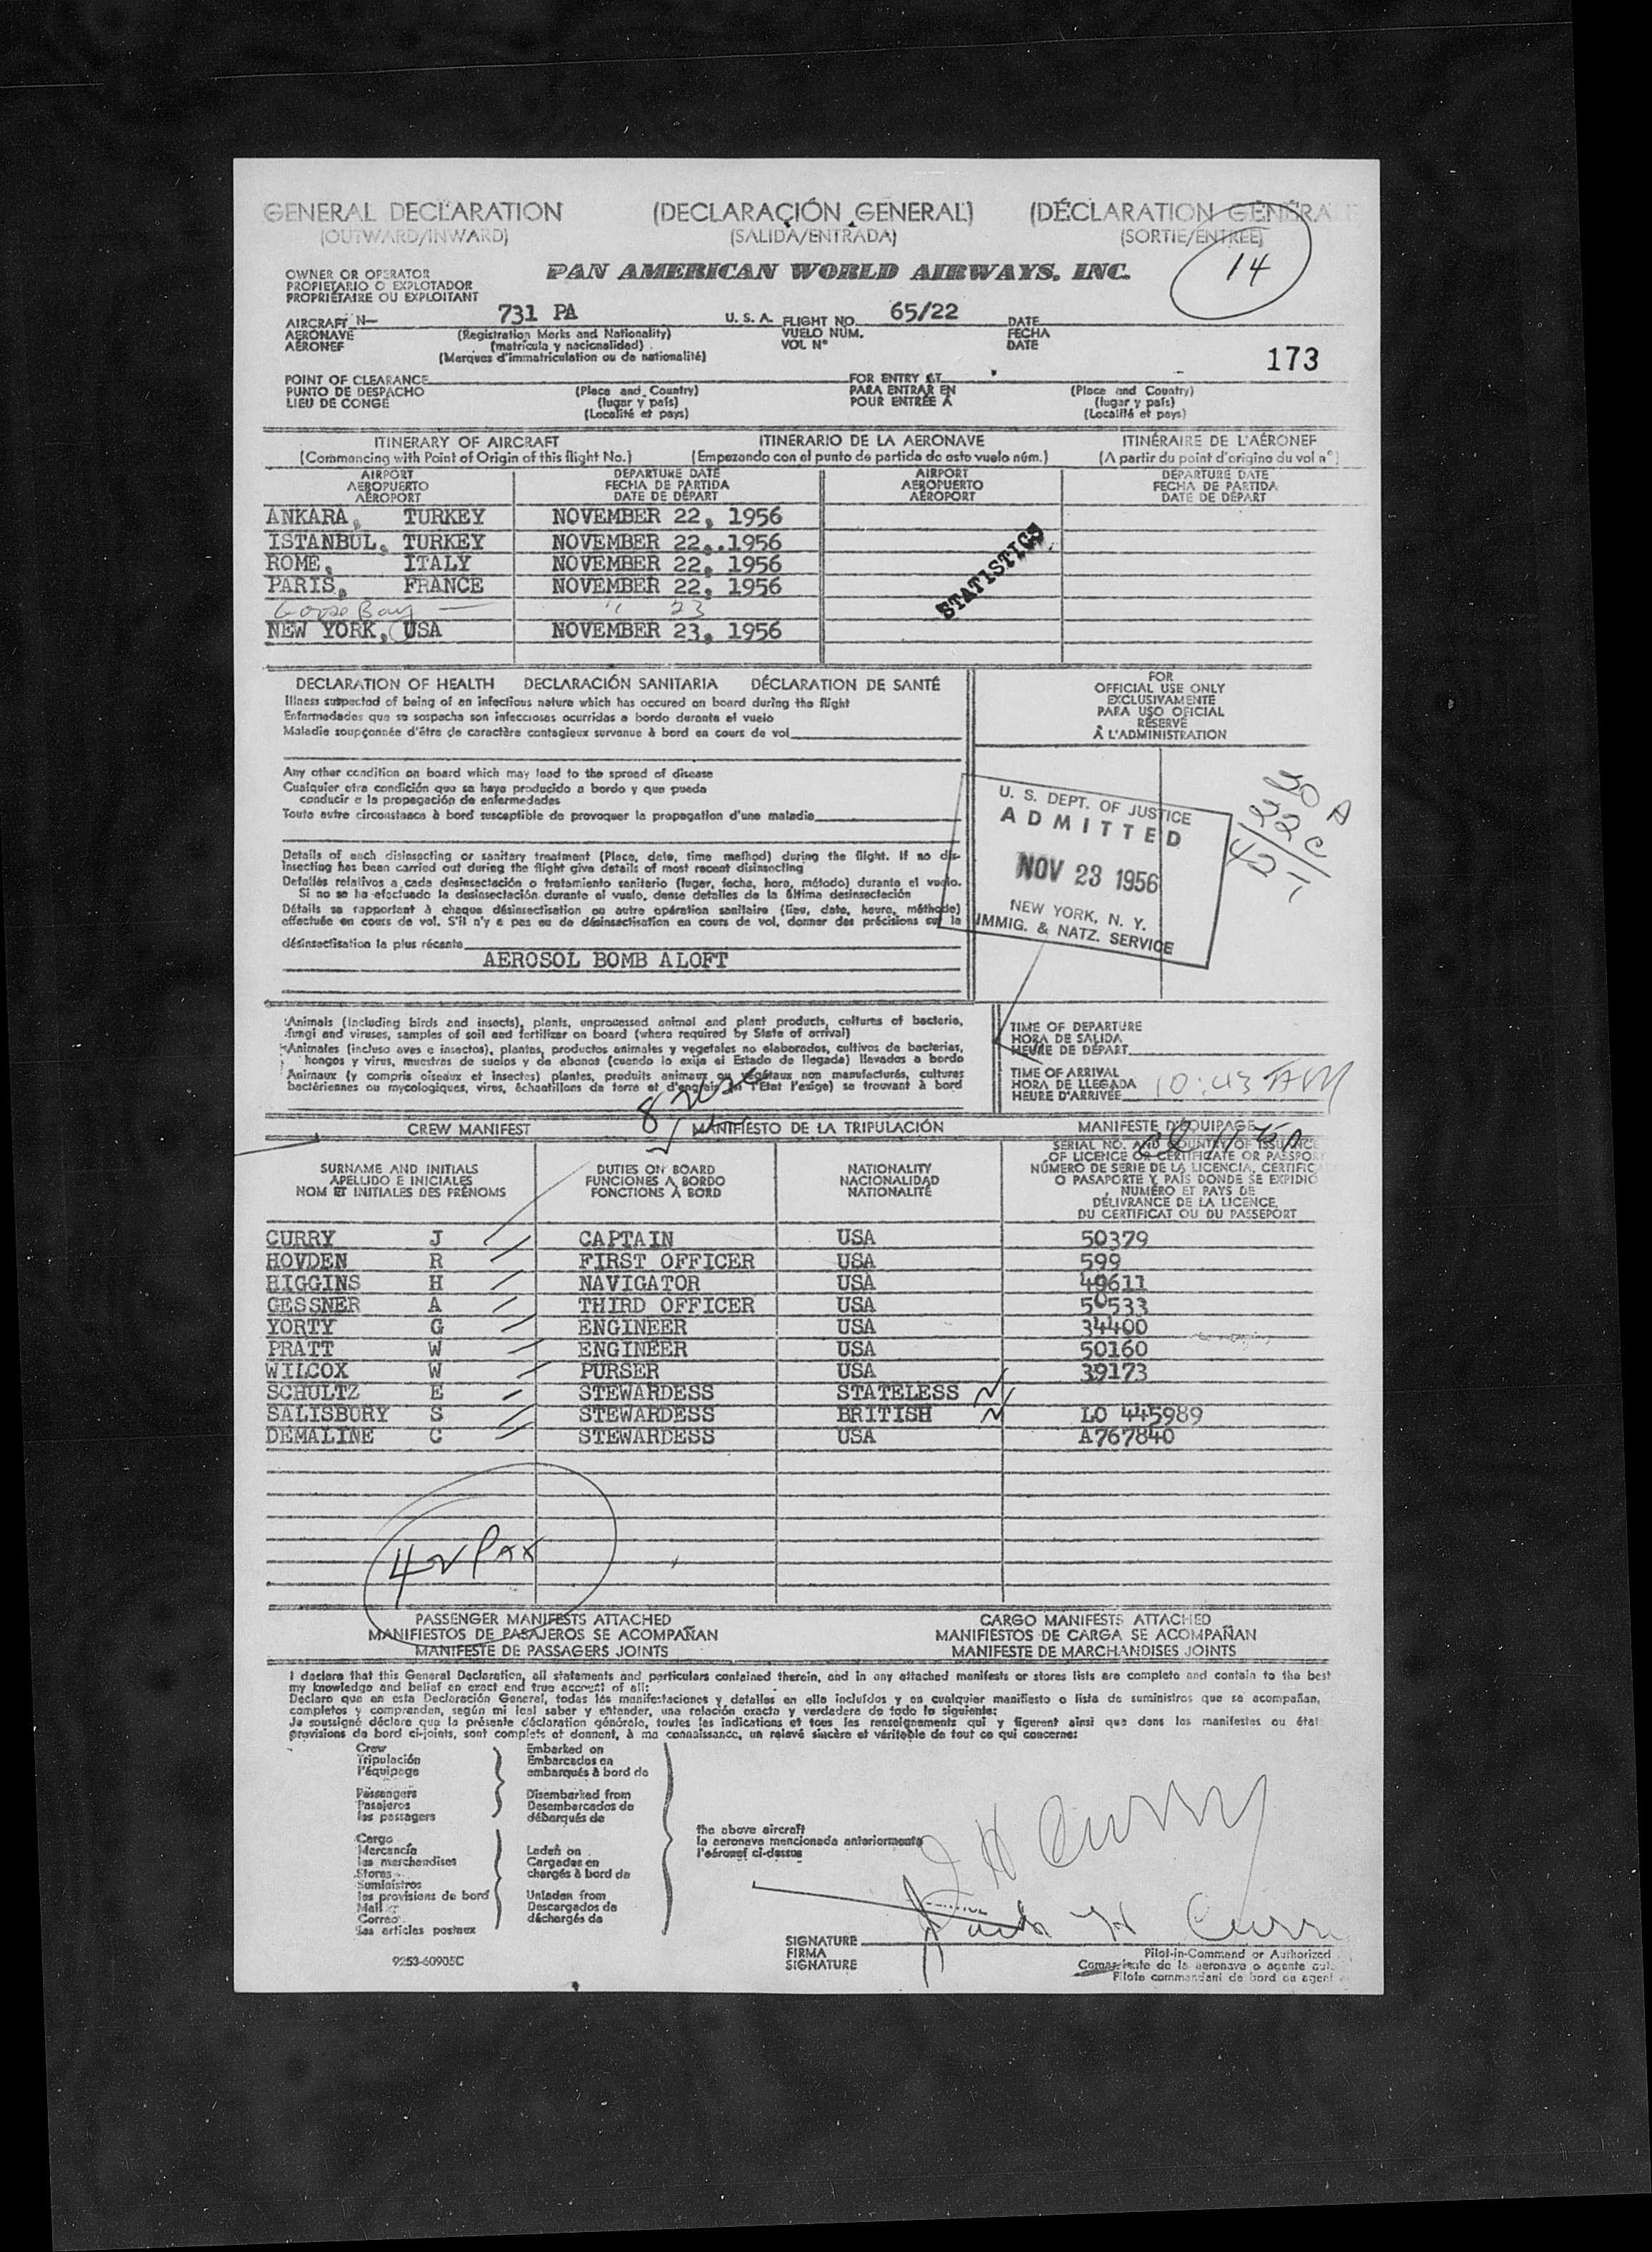 GENERAL DECLARATION (DECLARACIÓN GENERAL) (DÉCLARATION GÉNÉRALE
(OUTWARD/INWARD) (SALIDA/ENTRADA) (SORTIE/ENTRÉE)
14
OWNER OR OPERATOR PAN AMERICAN WORLD AIRWAYS, INC.
PROPIETARIO O EXPLOTADOR
PROPRIÉTAIRE OU EXPLOITANT
AIRCRAFT N— 731 PA U. S. A. FLIGHT NO. 65/22 DATE
AERONAVE (Registration Marks and Nationality) VUELO NÚM. FECHA
AÉRONEF (matrícula y nacionalidad) VOL Nº DATE
(Marques d'immatriculation ou de nationalité)
173
POINT OF CLEARANCE FOR ENTRY AT
PUNTO DE DESPACHO (Place and Country) PARA ENTRAR EN (Place and Country)
LIEU DE CONGÉ (lugar y país) POUR ENTRÉE À (lugar y país)
(Localité et pays) (Localité et pays)
ITINERARY OF AIRCRAFT ITINERARIO DE LA AERONAVE ITINÉRAIRE DE L'AÉRONEF
(Commencing with Point of Origin of this flight No.) (Empezando con el punto de partida de esto vuelo núm.) (A partir du point d'origine du vol nº)
AIRPORT DEPARTURE DATE AIRPORT DEPARTURE DATE
AEROPUERTO FECHA DE PARTIDA AEROPUERTO FECHA DE PARTIDA
AÉROPORT DATE DE DÉPART AÉROPORT DATE DE DÉPART
ANKARA, TURKEY NOVEMBER 22, 1956
ISTANBUL, TURKEY NOVEMBER 22,.1956
ROME, ITALY NOVEMBER 22, 1956
PARIS, FRANCE NOVEMBER 22, 1956
Goose Bay — " 23
NEW YORK, USA NOVEMBER 23, 1956
STATISTICS
DECLARATION OF HEALTH DECLARACIÓN SANITARIA DÉCLARATION DE SANTÉ
Illness suspected of being of an infectious nature which has occured on board during the flight
Enfermedades que se sospecha son infecciosas ocurridas a bordo durante el vuelo
Maladie soupçonnée d'être de caractère contagieux survenue à bord en cours de vol
FOR
OFFICIAL USE ONLY
EXCLUSIVAMENTE
PARA USO OFICIAL
RÉSERVÉ
À L'ADMINISTRATION
Any other condition on board which may lead to the spread of disease
Cualquier otra condición que se haya producido a bordo y que pueda
conducir a la propagación de enfermedades
Toute autre circonstance à bord susceptible de provoquer la propagation d'une maladie
U. S. DEPT. OF JUSTICE
ADMITTED
NOV 23 1956
NEW YORK, N. Y.
IMMIG. & NATZ. SERVICE
Details of each disinsecting or sanitary treatment (Place, date, time method) during the flight. If no dis-
insecting has been carried out during the flight give details of most recent disinsecting
Detalles relativos a cada desinsectación o tratamiento sanitario (lugar, fecha, hora, método) durante el vuelo.
Si no se ha efectuado la desinsectación durante el vuelo, dense detalles de la última desinsectación
Détails se rapportant à chaque désinsectisation ou autre opération sanitaire (lieu, date, heure, méthode)
effectuée en cours de vol. S'il n'y a pas eu de désinsectisation en cours de vol, donner des précisions sur la
désinsectisation la plus récente
AEROSOL BOMB ALOFT
Animals (including birds and insects), plants, unprocessed animal and plant products, cultures of bacteria,
fungi and viruses, samples of soil and fertilizer on board (where required by State of arrival)
Animales (incluso aves e insectos), plantas, productos animales y vegetales no elaborados, cultivos de bacterias,
hongos y virus, muestras de suelos y de abonos (cuando lo exija el Estado de llegada) llevados a bordo
Animaux (y compris oiseaux et insectes) plantes, produits animaux ou végétaux non manufacturés, cultures
bactériennes ou mycologiques, virus, échantillons de terre et d'engrais (si l'Etat l'exige) se trouvant à bord
TIME OF DEPARTURE
HORA DE SALIDA
HEURE DE DÉPART
TIME OF ARRIVAL
HORA DE LLEGADA 10:43 AM
HEURE D'ARRIVÉE
CREW MANIFEST MANIFIESTO DE LA TRIPULACIÓN MANIFESTE D'ÉQUIPAGE
SURNAME AND INITIALS DUTIES ON BOARD NATIONALITY
APELLIDO E INICIALES FUNCIONES A BORDO NACIONALIDAD
NOM ET INITIALES DES PRÉNOMS FONCTIONS À BORD NATIONALITÉ
SERIAL NO. AND COUNTRY OF ISSUANCE
OF LICENCE OR CERTIFICATE OR PASSPOR
NÚMERO DE SERIE DE LA LICENCIA, CERTIFIC
O PASAPORTE Y PAÍS DONDE SE EXPIDIÓ
NUMÉRO ET PAYS DE
DÉLIVRANCE DE LA LICENCE,
DU CERTIFICAT OU DU PASSEPORT
CURRY J CAPTAIN USA 50379
HOVDEN R FIRST OFFICER USA 599
HIGGINS H NAVIGATOR USA 49611
GESSNER A THIRD OFFICER USA 50533
YORTY G ENGINEER USA 34400
PRATT W ENGINEER USA 50160
WILCOX W PURSER USA 39173
SCHULTZ E STEWARDESS STATELESS
SALISBURY S STEWARDESS BRITISH LO 445989
DEMALINE C STEWARDESS USA A767840
42 Pax
PASSENGER MANIFESTS ATTACHED CARGO MANIFESTS ATTACHED
MANIFIESTOS DE PASAJEROS SE ACOMPAÑAN MANIFIESTOS DE CARGA SE ACOMPAÑAN
MANIFESTE DE PASSAGERS JOINTS MANIFESTE DE MARCHANDISES JOINTS
I declare that this General Declaration, all statements and particulars contained therein, and in any attached manifests or stores lists are complete and contain to the best
my knowledge and belief an exact and true account of all:
Declaro que en esta Declaración General, todas las manifestaciones y detalles en ella incluídos y en cualquier manifiesto o lista de suministros que se acompañan,
completos y comprenden, según mi leal saber y entender, una relación exacta y verdadera de todo lo siguiente:
Je soussigné déclare que la présente déclaration générale, toutes les indications et tous les renseignements qui y figurent ainsi que dans les manifestes ou état
provisions de bord ci-joints, sont complets et donnent, à ma connaissance, un relevé sincère et véritable de tout ce qui concerne:
Crew Embarked on
Tripulación Embarcados en
l'équipage embarqués à bord de
Passengers Disembarked from
Pasajeros Desembarcados de
les passagers débarqués de
the above aircraft
la aeronave mencionada anteriormente
l'aéronef ci-dessus
Cargo
Mercancía Laden on
les marchandises Cargados en
Stores chargés à bord de
Suministros
les provisions de bord Unladen from
Mail Descargados de
Correo déchargés de
Les articles postaux
J H Curry
SIGNATURE
FIRMA
SIGNATURE
Pilot-in-Command or Authorized
Comandante de la aeronave o agente aut.
Pilote commandant de bord ou agent
9253-60905C